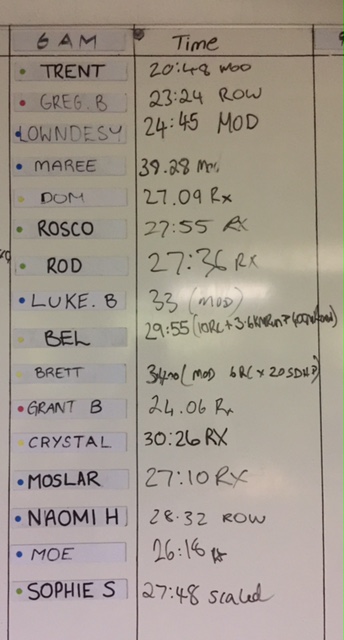 6 AM Time
TRENT 20:48 MOD
GREG.B 23:24 ROW
LOWNDESY 24:45 MOD
MAREE 39.28 Mod
DOM 27.09 Rx
ROSCO 27:55 RX
ROD 27:36 RX
LUKE. B 33 (MOD)
BEL 29:55 (10RC + 3.6KM Run
BRETT (MOD 6RC x 20
GRANT B 24.06 Rx
CRYSTAL 30:26 RX
MOSLAR 27:10 RX
NAOMI H 28.32 ROW
MOE 26:18
SOPHIE S 27:48 scaled